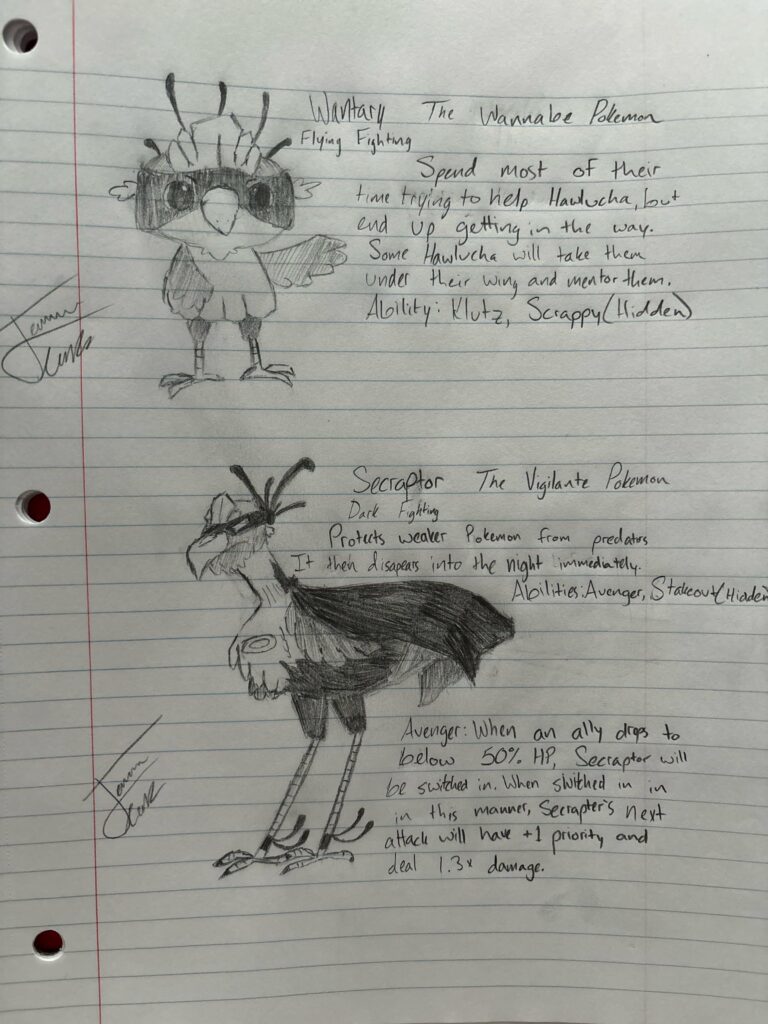 Wantary The Wannabe Pokemon
Flying Fighting
Spend most of their
time trying to help Hawlucha, but
end up getting in the way.
Some Hawlucha will take them
under their wing and mentor them.
Ability: Klutz, Scrappy(Hidden)
Secraptor The Vigilante Pokemon
Dark Fighting
Protects weaker Pokemon from predators
It then disapears into the night immediately.
Abilities: Avenger, Stakeout(Hidden)
Avenger: When an ally drops to
below 50% HP, Secraptor will
be switched in. When switched in in
in this manner, Secrapter's next
attack will have +1 priority and
deal 1.3x damage.